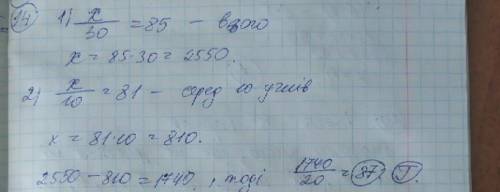 14) 1) x/30 = 85 – всього
x = 85·30 = 2550.
2) x/10 = 81 – серед 10 учнів
x = 81·10 = 810.
2550 – 810 = 1740, тоді 1740/20 = 87. Г.